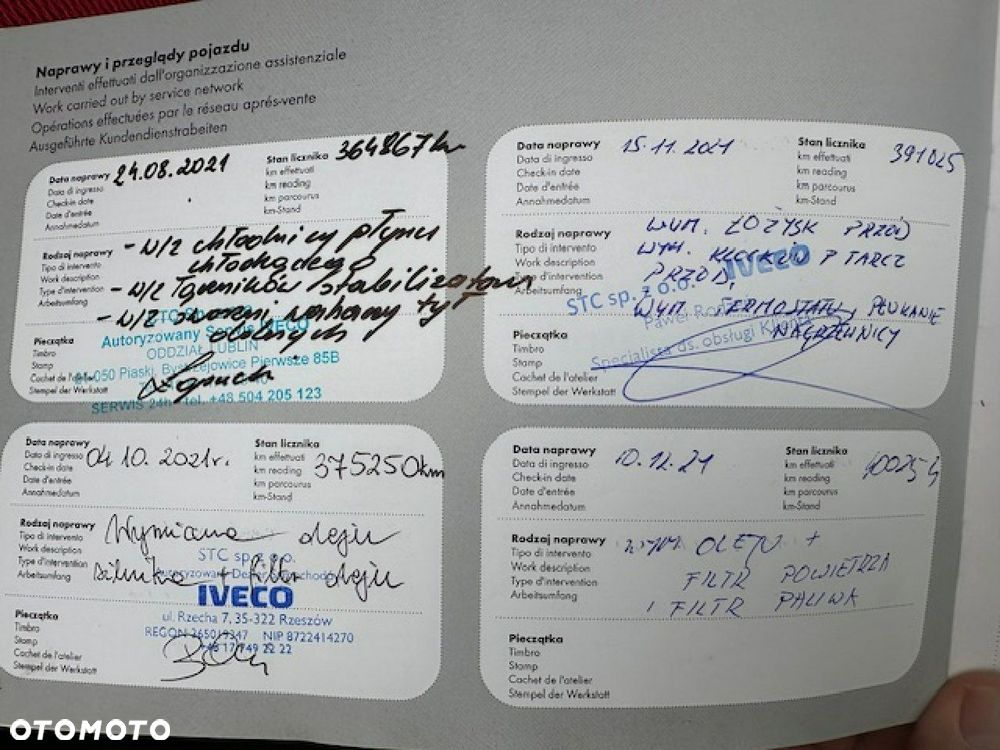 Naprawy i przeglądy pojazdu
Interventi effettuati dall'organizzazione assistenziale
Work carried out by service network
Opérations effectuées par le réseau après-vente
Ausgeführte Kundendienstrabeiten
Data naprawy 24.08.2021 Stan licznika 364867 km
Data di ingresso km effettuati
Check-in date km reading
Date d'entrée km parcourus
Annahmedatum km-Stand
Rodzaj naprawy - w/z chłodnicy płynu
Tipo di intervento chłodzącego
Work description - w/z łączników stabilizatora
Type d'intervention - w/z sworzni wahaczy
Arbeitsumfang
Autoryzowany Serwis IVECO
ODDZIAŁ LUBLIN
Pieczątka
Timbro 21-050 Piaski, Bystrzejowice Pierwsze 85B
Stamp
Cachet de l'atelier
Stempel der Werkstatt
SERWIS 24h - tel. +48 504 205 123
Data naprawy 15.11.2021 Stan licznika 391025
Data di ingresso km effettuati
Check-in date km reading
Date d'entrée km parcourus
Annahmedatum km-Stand
Rodzaj naprawy WYM. ŁOŻYSK PRZÓD
Tipo di intervento WYM. KLOCKÓW + TARCZ
Work description PRZÓD,
Type d'intervention WYM. TERMOSTATU, PŁUKANIE
Arbeitsumfang NAGRZEWNICY
IVECO
STC sp. z o.o.
Paweł
Specjalista ds. obsługi
Pieczątka
Timbro
Stamp
Cachet de l'atelier
Stempel der Werkstatt
Data naprawy 04.10.2021r. Stan licznika 375250km
Data di ingresso km effettuati
Check-in date km reading
Date d'entrée km parcourus
Annahmedatum km-Stand
Rodzaj naprawy Wymiana oleju
Tipo di intervento
Work description silnika + filtr oleju
Type d'intervention
Arbeitsumfang
STC sp. z o.o.
IVECO
ul. Rzecha 7, 35-322 Rzeszów
REGON NIP 8722414270
Pieczątka
Timbro
Stamp
Cachet de l'atelier
Stempel der Werkstatt
Data naprawy 10.12.21 Stan licznika
Data di ingresso km effettuati
Check-in date km reading
Date d'entrée km parcourus
Annahmedatum km-Stand
Rodzaj naprawy OLEJU +
Tipo di intervento FILTR POWIETRZA
Work description I FILTR PALIWA
Type d'intervention
Arbeitsumfang
Pieczątka
Timbro
Stamp
Cachet de l'atelier
Stempel der Werkstatt
OTOMOTO